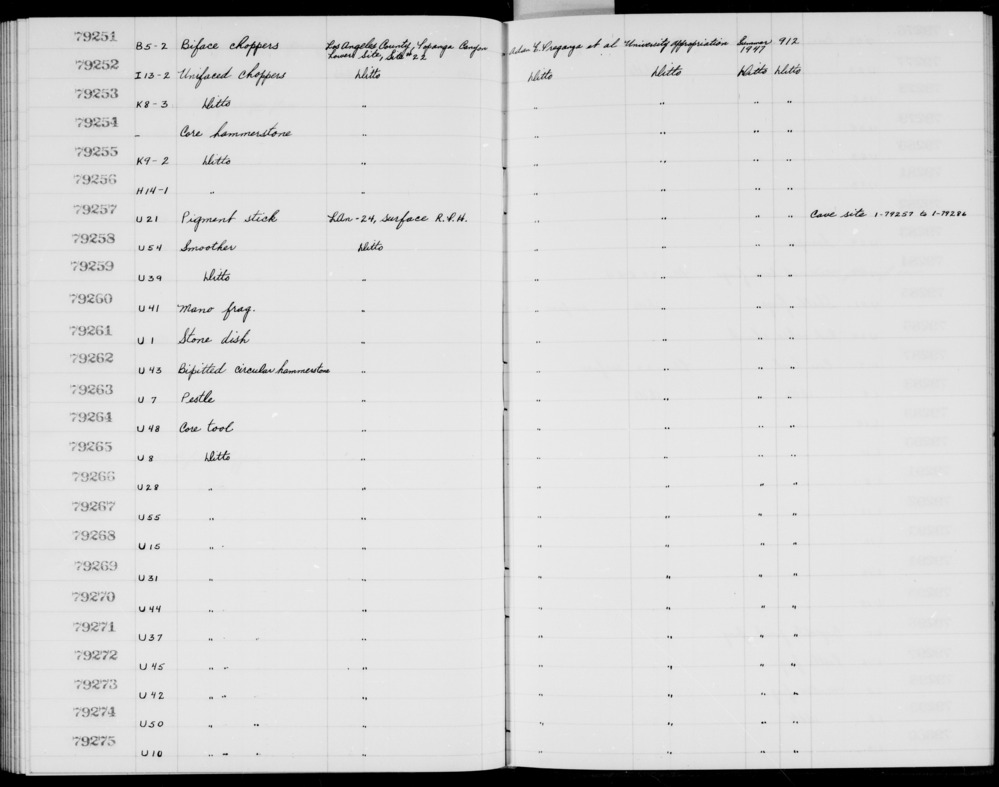 79251 B5-2 Biface choppers Los Angeles County, Topanga Canyon et al University Appropriation Summer 1947 912
Lower Site, Site # 22
79252 I13-2 Unifaced choppers Ditto Ditto Ditto Ditto Ditto
79253 K8-3 Ditto " " " " "
79254 - Core hammerstone " " " " "
79255 K9-2 Ditto " " " " "
79256 H14-1 " " " " " "
79257 U21 Pigment stick LAn-24, surface R.P.H. " " " " Cave site 1-79257 to 1-79286
79258 U54 Smoother Ditto " " " "
79259 U39 Ditto " " " " "
79260 U41 Mano frag. " " " " "
79261 U1 Stone dish " " " " "
79262 U43 Bipitted circular hammerstone " " " " "
79263 U7 Pestle " " " " "
79264 U48 Core tool " " " " "
79265 U8 Ditto " " " " "
79266 U28 " " " " " "
79267 U55 " " " " " "
79268 U15 " " " " " "
79269 U31 " " " " " "
79270 U44 " " " " " "
79271 U37 " " " " " " "
79272 U45 " " " " " " "
79273 U42 " " " " " " "
79274 U50 " " " " " " "
79275 U10 " " " " " " " "